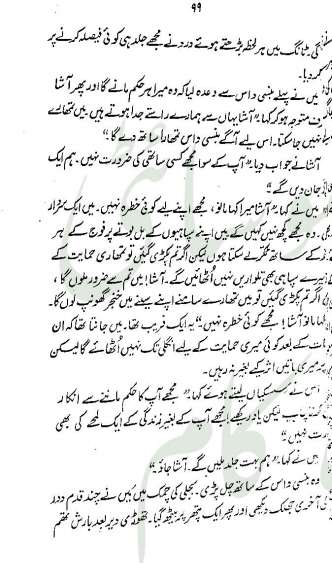 ۹۹
ٹانگ میں ہر لحظہ بڑھتے ہوئے درد نے مجھے جلد ہی کوئی فیصلہ کرنے پر
کر دیا۔
میں نے پہلے بنسی داس سے وعدہ لیا کہ وہ میرا ہر حکم مانے گا اور پھر آشا
متوجہ ہو کر کہا۔" آشا یہاں سے ہمارے راستے جدا ہوتے ہیں۔ میں تمھارے
نہیں جا سکتا۔ اس لیے آگے بنسی داس تمھارا ساتھ دے گا۔"
آشا نے جواب دیا۔" آپ کے سوا مجھے کسی ساتھی کی ضرورت نہیں۔ ہم ایک
جان دیں گے۔"
میں نے کہا۔" آشا میرا کہا مانو، مجھے اپنے لیے کوئی خطرہ نہیں۔ میں ایک سردار
وہ مجھے کچھ نہیں کہیں گے میں اپنے سپاہیوں کے بل بوتے پر فوج کے ہر
کے ساتھ ٹکر لے سکتا ہوں لیکن اگر تم پکڑی گئیں تو تمھاری حمایت کے
میرے سپاہی بھی تلواریں نہیں اُٹھائیں گے۔ آشا! میں تم سے ضرور ملوں گا،
اگر تم پکڑی گئیں تو میں تمھارے سامنے اپنے سینے میں خنجر گھونپ لوں گا۔
کہا مانو آشا! مجھے کوئی خطرہ نہیں۔" یہ ایک فریب تھا۔ میں جانتا تھا کہ ان
کے بعد کوئی میری حمایت کے لیے انگلی تک نہیں اُٹھائے گا لیکن
پر میری باتیں اثر کیے بغیر نہ رہیں۔
اس نے سسکیاں لیتے ہوئے کہا۔" مجھے آپ کا حکم ماننے سے انکار
لیکن یاد رکھیے! مجھے آپ کے بغیر زندگی کے ایک لمحے کی بھی
نہیں۔"
میں نے کہا۔" ہم بہت جلد ملیں گے۔ آشا جاؤ۔"
وہ بنسی داس کے ساتھ چل پڑی۔ بجلی کی چمک میں میں نے چند قدم دور
آخری جھلک دیکھی اور پھر ایک پتھر پر بیٹھ گیا۔ تھوڑی دیر بعد بارش تھم